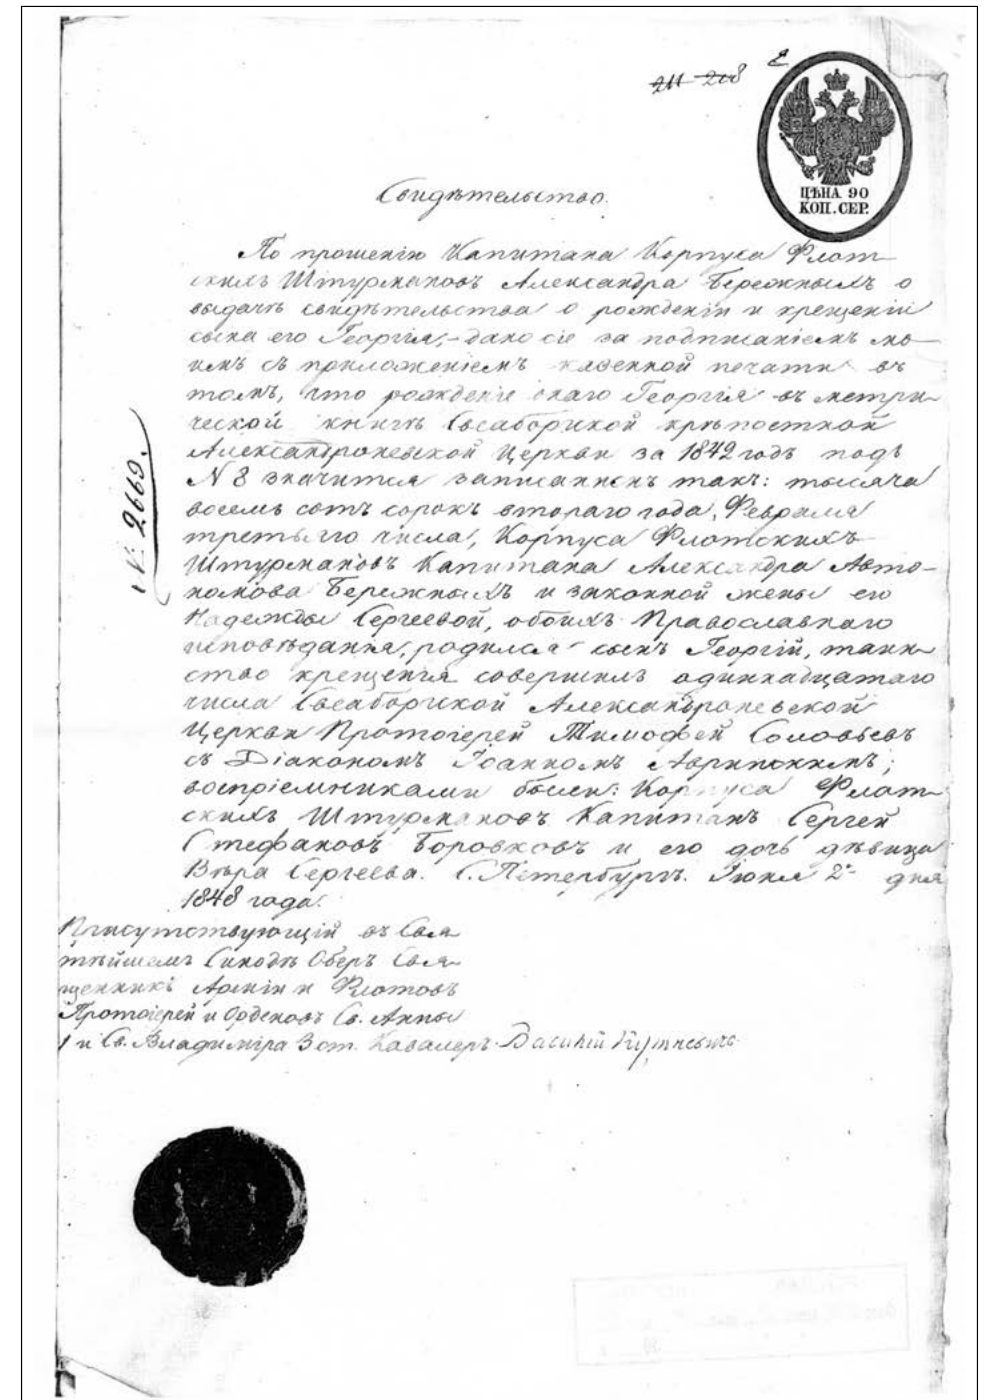 211 208
ЦѢНА 90
КОП. СЕР.
Свидѣтельство.
По прошенію Капитана Корпуса Флот-
скихъ Штурмановъ Александра Бережныхъ о
выдачѣ свидѣтельства о рожденіи и крещеніи
сына его Георгія, - дано сіе за подписаніемъ мо-
имъ съ приложеніемъ казенной печати въ
томъ, что рожденіе онаго Георгія въ метри-
ческой книгѣ Свеаборгской крѣпостной
Александроневской Церкви за 1842 годъ подъ
N 8 значится записаннымъ такъ: тысяча
восемь сотъ сорокъ втораго года, Февраля
третьяго числа, Корпуса Флотскихъ
Штурмановъ Капитана Александра Авто-
номова Бережныхъ и законной жены его
Надежды Сергеевой, обоихъ Православнаго
исповѣданія, родился сынъ Георгій, таин-
ство крещенія совершилъ одиннадцатаго
числа Свеаборгской Александроневской
Церкви Протоіерей Тимофей Соловьевъ
съ Діакономъ Іоанномъ
воспріемниками были: Корпуса Флот-
скихъ Штурмановъ Капитанъ Сергей
Стефановъ Боровковъ и его дочь дѣвица
Вѣра Сергеева. С. Петербургъ. Іюня 2 дня
1848 года.
№ 2669.
Присутствующій въ Свя-
тѣйшемъ Синодѣ Оберъ Свя-
щенникъ Арміи и Флотовъ
Протоіерей и Орденовъ Св. Анны
1 и Св. Владиміра 3 ст. Кавалеръ Василій Кутневичъ